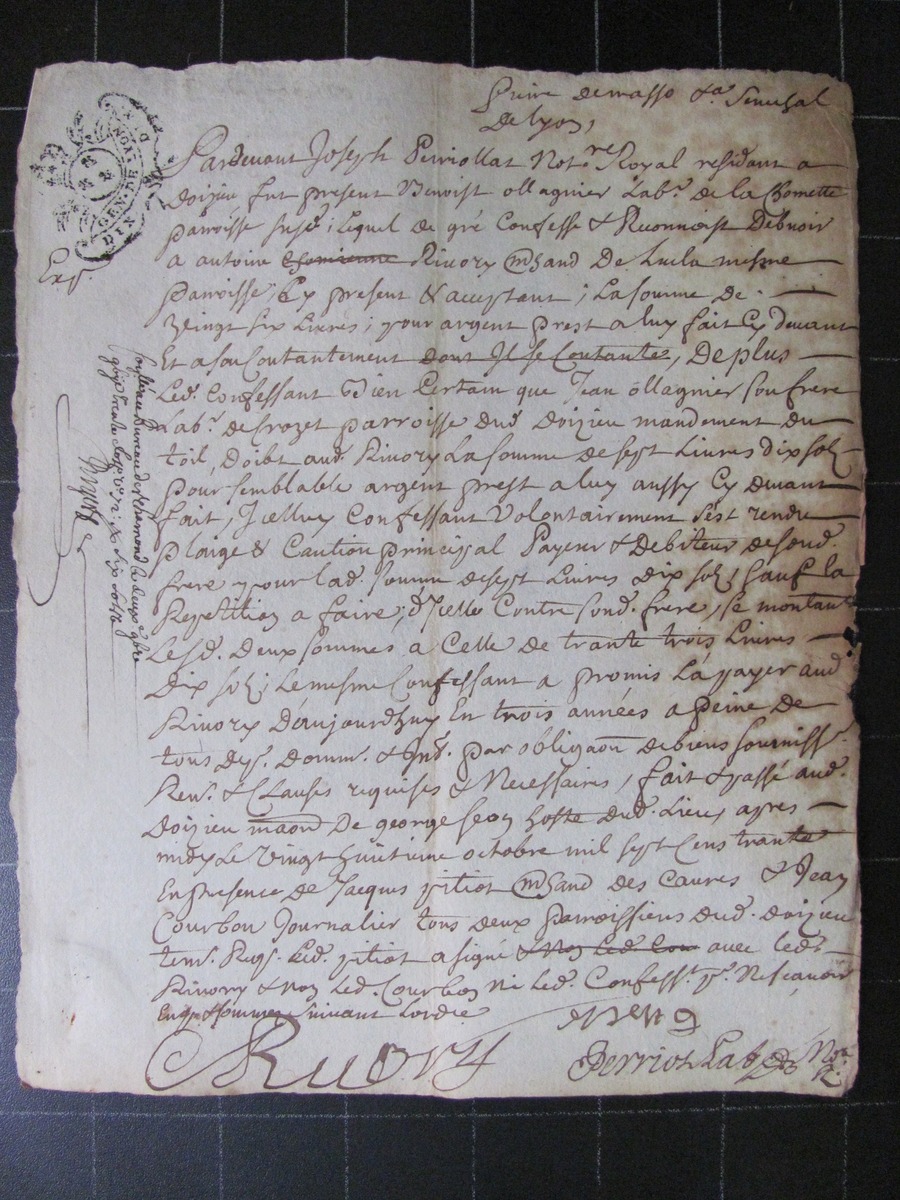 de Lyon,
Pardevant Joseph Perriollat Not.re Royal residant a
doizieu fut present Benoist ollagnier Lab.r de la Chomette
parroisse susd. lequel de gré Confesse & Reconnoist Debvoir
a antoine Rivory mhand De mesme
parroisse, Cy present & acceptant, La somme de
vingt six Livres, pour argent prest a luy fait Cy devant
Et a son Contantement dont Il se Contante, De plus
Led. Confessant Bien Certain que Jean ollagnier son frere
Lab.r de Crozet parroisse dud. doizieu mandement du
toil, Doibt aud. Rivory La somme de sept Livres dix solz
pour semblable argent prest a luy aussy Cy devant
fait, Icelluy Confessant Volontairement s'est rendu
plaige & Caution principal Payeur & Debiteur de sond.
frere pour lad. somme de sept Livres dix solz, sauf la
Repetition a faire, d'Icelle Contre sond. frere, se montant
Lesd. Deux sommes a Celle de trante trois Livres
Dix solz, Le mesme Confessant a promis La payer aud.
Rivory D'aujourdhuy En trois années a peine de
tous dep. Domm. & Int. par obligaon de biens soumiss.
Ren. & Clauses requises & Necessaires, fait & passé aud.
Doizieu maon De george Jean hoste dud. Lieu apres
midy Le Vingt huitieme octobre mil sept Cens trante
En presence de Jacques pitiot mhand des Caures & Jean
Courbon Journalier tous deux parroissiens dud. doizieu
tem. Req. Led. pitiot a signé avec led.
Rivory & non Led. Courbon ni Led. Confess.t p.r ne scavoir
Enq. & sommes suivant Lordce
Rivory
Perriollat Not. R.
GEN. DE LYON